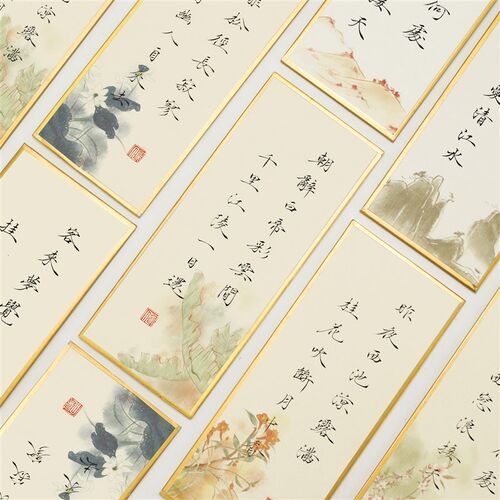 露滿
松徑長寂寥
幽人自來去
何處
天
清江水
朝辭白帝彩雲間
千里江陵一日還
客來夢覺
昨夜西池涼露滿
桂花吹斷月中香